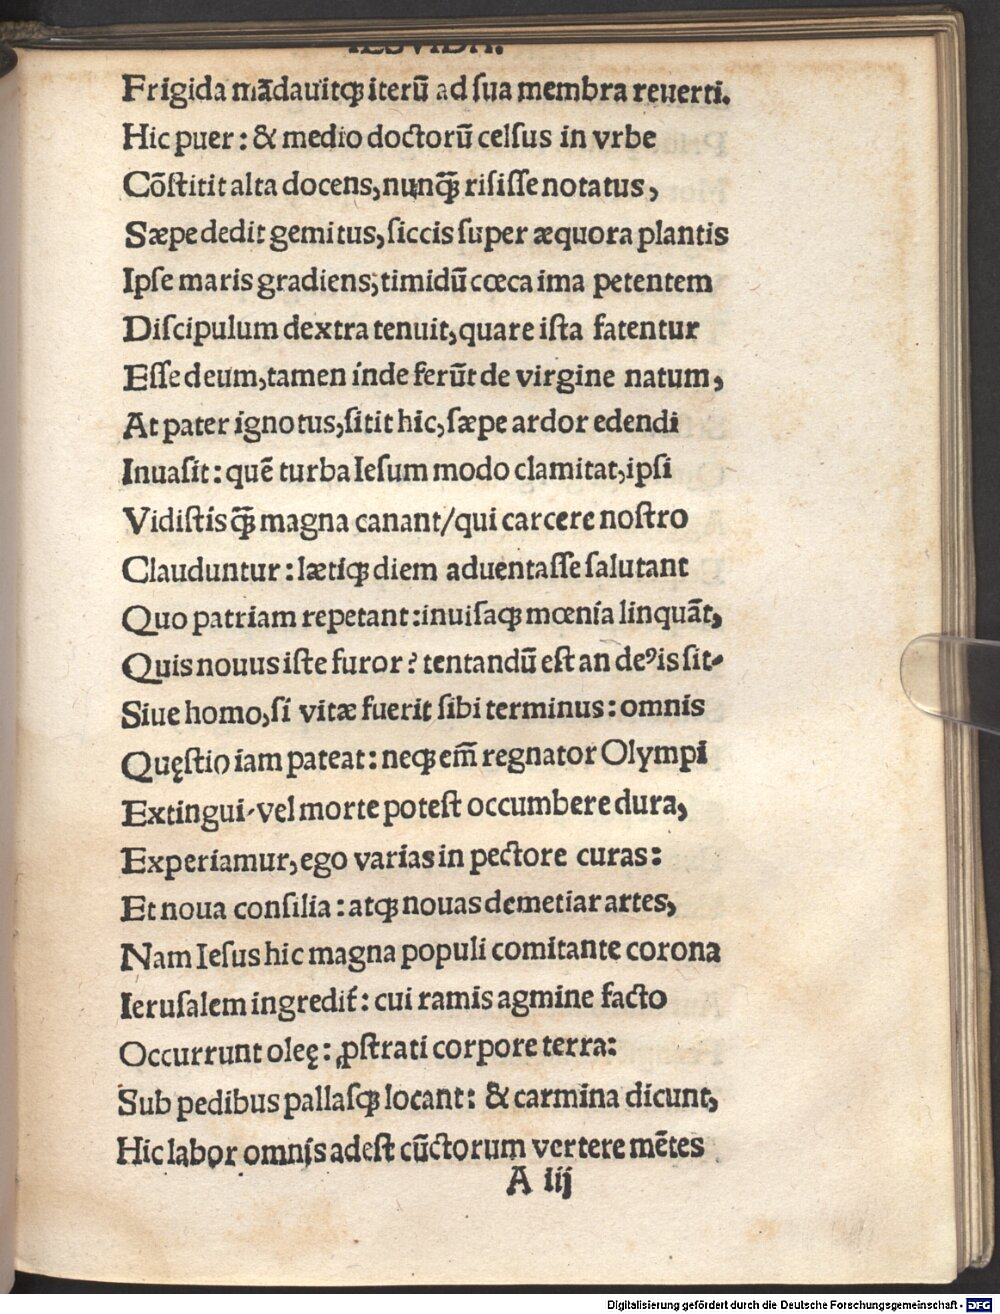 IESVIDA.
Frigida mādauitqꝫ iterū ad ſua membra reuerti.
Hic puer: & medio doctorū celſus in vrbe
Cōſtitit alta docens, nunꝗ̃ riſiſſe notatus,
Sæpe dedit gemitus, ſiccis ſuper æquora plantis
Ipſe maris gradiens, timidū cœca ima petentem
Diſcipulum dextra tenuit, quare iſta fatentur
Eſſe deum, tamen inde ferūt de virgine natum,
At pater ignotus, ſitit hic, ſæpe ardor edendi
Inuaſit: quē turba Ieſum modo clamitat, ipſi
Vidiſtis ꝗ̃ magna canant/qui carcere noſtro
Clauduntur: lætiqꝫ diem aduentaſſe ſalutant
Quo patriam repetant: inuiſaqꝫ mœnia linquāt,
Quis nouus iſte furor? tentandū eſt an deꝰ is ſit⸗
Siue homo, ſi vitæ fuerit ſibi terminus: omnis
Quęſtio iam pateat: neqꝫ em̄ regnator Olympi
Extingui⸗vel morte poteſt occumbere dura,
Experiamur, ego varias in pectore curas:
Et noua conſilia: atqꝫ nouas demetiar artes,
Nam Ieſus hic magna populi comitante corona
Ieruſalem ingredit᷑: cui ramis agmine facto
Occurrunt oleę: ꝓſtrati corpore terra:
Sub pedibus pallaſqꝫ locant: & carmina dicunt,
Hic labor omnis adeſt cūctorum vertere mētes
A iij
Digitalisierung gefördert durch die Deutsche Forschungsgemeinschaft - DFG